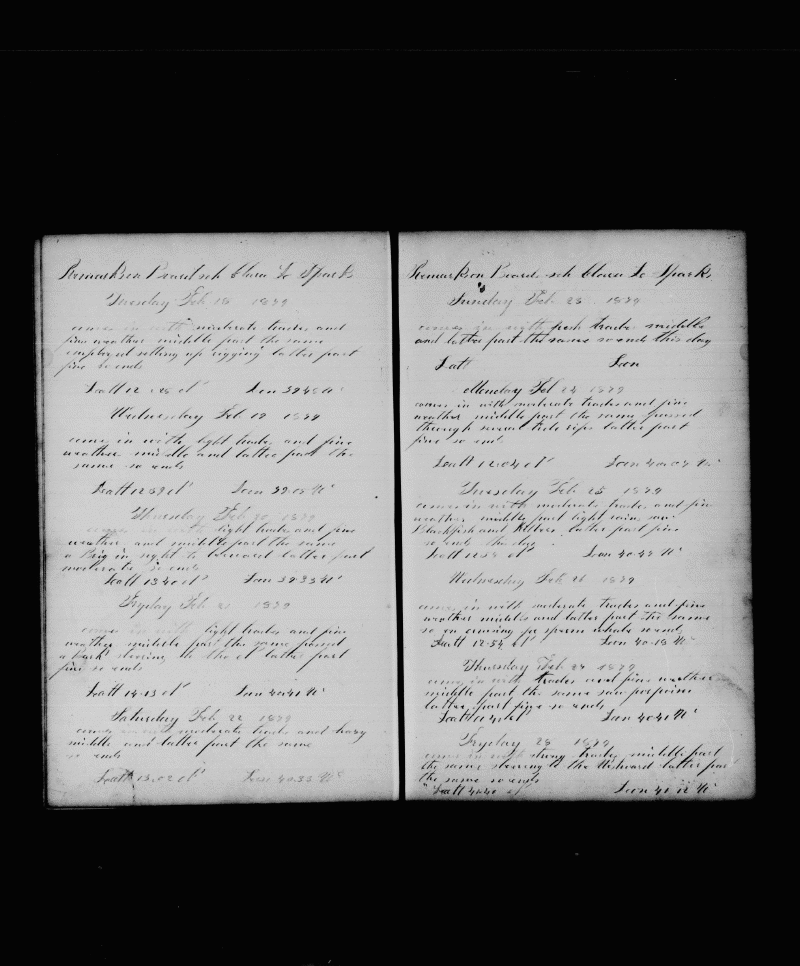 Remarks on Board sch Clara L Sparks
Tuesday Feb 18 1879
comes in with moderate trades and
fine weather middle part the same
employed setting up rigging latter part
fine so ends
Latt 12.28 N Lon 39.48 W
Wednesday Feb 19 1879
comes in with light trades and fine
weather middle and latter part the
same so ends
Latt 12.59 N Lon 39.04 W
Thursday Feb 20 1879
comes in with light trades and fine
weather and middle part the same
a Brig in sight to leeward latter part
moderate so ends
Latt 13.40 N Lon 39.33 W
Fryday Feb 21 1879
comes in with light trades and fine
weather middle part the same passed
a bark steering to the N latter part
fine so ends
Latt 14.13 N Lon 40.41 W
Saturday Feb 22 1879
comes in with moderate trades and hazy
middle and latter part the same
so ends
Latt 13.02 N Lon 40.33 W
Remarks on Board sch Clara L Sparks
Sunday Feb 23 1879
comes in with fresh trades middle
and latter part the same so ends this day
Latt Lon
Monday Feb 24 1879
comes in with moderate trades and fine
weather middle part the same passed
through several tide rips latter part
fine so ends
Latt 12.04 N Lon 40.04 W
Tuesday Feb 25 1879
comes in with moderate trades and fine
weather middle part light rain saw
Blackfish and Killers latter part fine
so ends the day
Latt 12.54 N Lon 40.47 W
Wednesday Feb 26 1879
comes in with moderate trades and fine
weather middle and latter part the same
so on cruising for sperm whale so ends
Latt 12.54 N Lon 40.18 W
Thursday Feb 27 1879
comes in with trades and fine weather
middle part the same saw porpoise
latter part fine so ends
Latt Lon 40.41 W
Fryday 28 1879
comes in with strong trades middle part
the same steering to the Westward latter part
the same so ends
Latt Lon 41.12 W